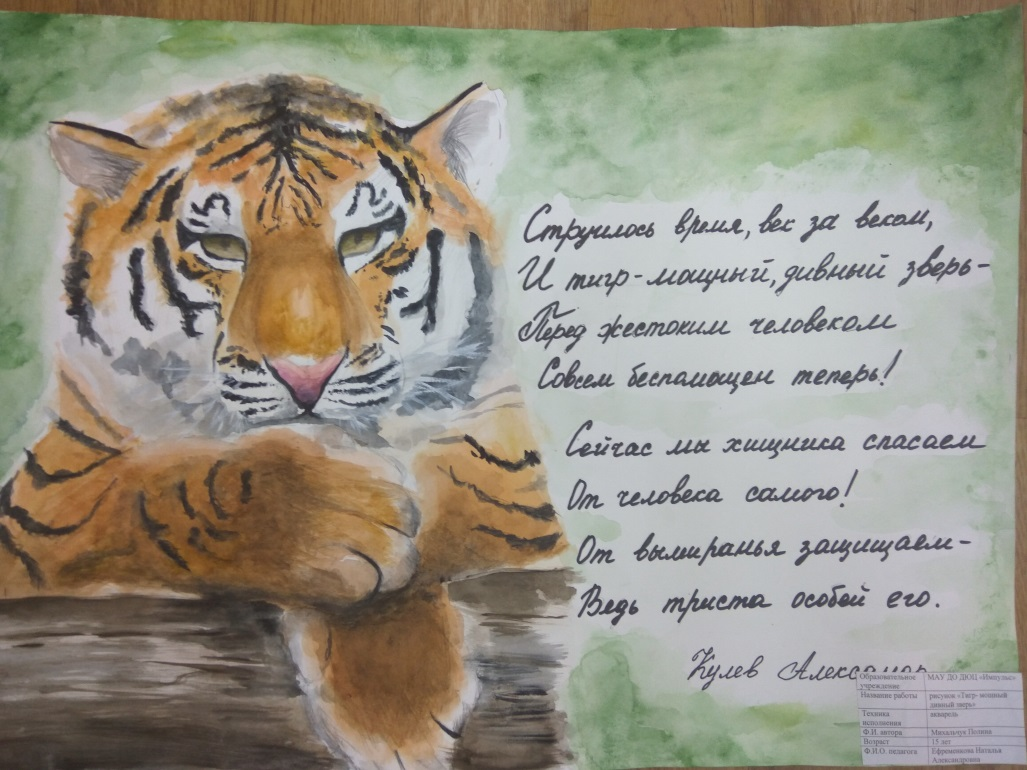 Струилось время, век за веком,
И тигр - мощный, дивный зверь -
Перед жестоким человеком
Совсем беспомощен теперь!
Сейчас мы хищника спасаем
От человека самого!
От вымиранья защищаем -
Ведь триста особей его.
Кулев
Образовательное учреждение МАУ ДО ДЮЦ «Импульс»
Название работы рисунок «Тигр- мощный дивный зверь»
Техника исполнения акварель
Ф.И. автора Михальчук Полина
Возраст 15 лет
Ф.И.О. педагога Ефременкова Наталья Александровна